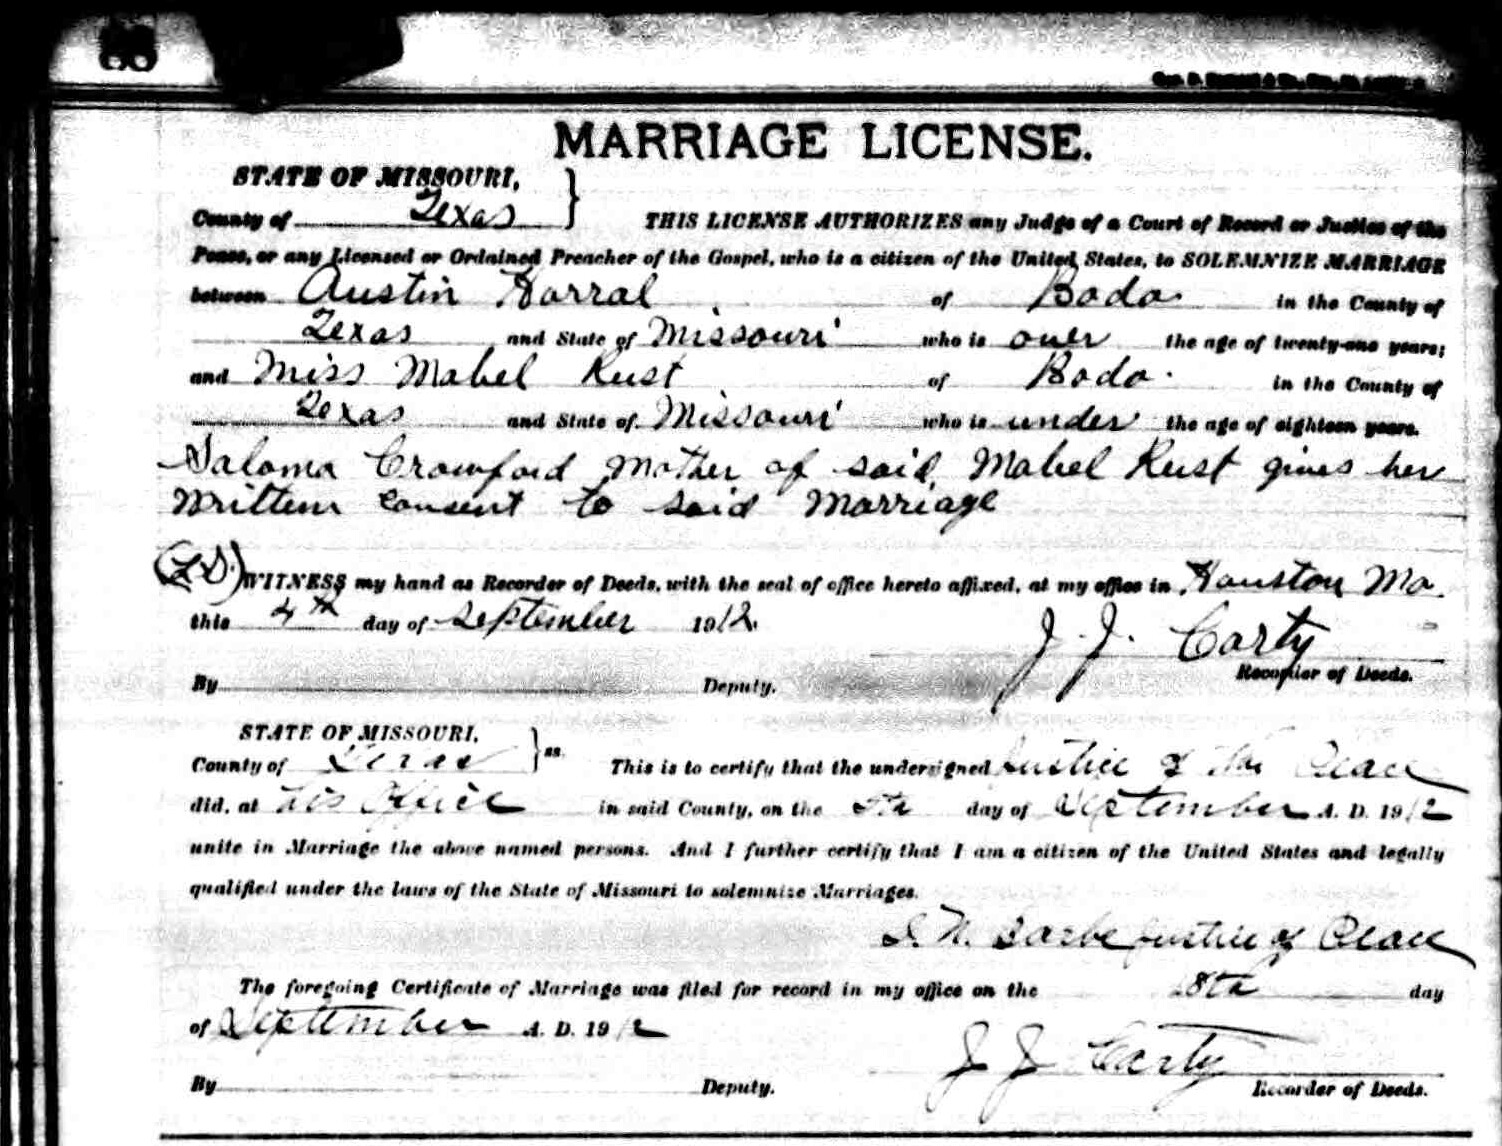 MARRIAGE LICENSE.
STATE OF MISSOURI,
County of Texas } THIS LICENSE AUTHORIZES any Judge of a Court of Record or Justice of the
Peace, or any Licensed or Ordained Preacher of the Gospel, who is a citizen of the United States, to SOLEMNIZE MARRIAGE
between Austin Harral of Bado in the County of
Texas and State of Missouri who is over the age of twenty-one years;
and Miss Mabel Rust of Bado. in the County of
Texas and State of Missouri who is under the age of eighteen years.
Saloma Crawford Mother of said Mabel Rust gives her
Written Consent to said Marriage
(L.S.) WITNESS my hand as Recorder of Deeds, with the seal of office hereto affixed, at my office in Houston Mo.
this 4th day of September 1912.
J. J. Carty
Recorder of Deeds.
By Deputy.
STATE OF MISSOURI,
County of Texas } ss. This is to certify that the undersigned Justice of the Peace
did, at his Office in said County, on the 5th day of September A. D. 1912
unite in Marriage the above named persons. And I further certify that I am a citizen of the United States and legally
qualified under the laws of the State of Missouri to solemnize Marriages.
Justice of Peace
The foregoing Certificate of Marriage was filed for record in my office on the 18th day
of September A. D. 1912
J J Carty
By Deputy. Recorder of Deeds.